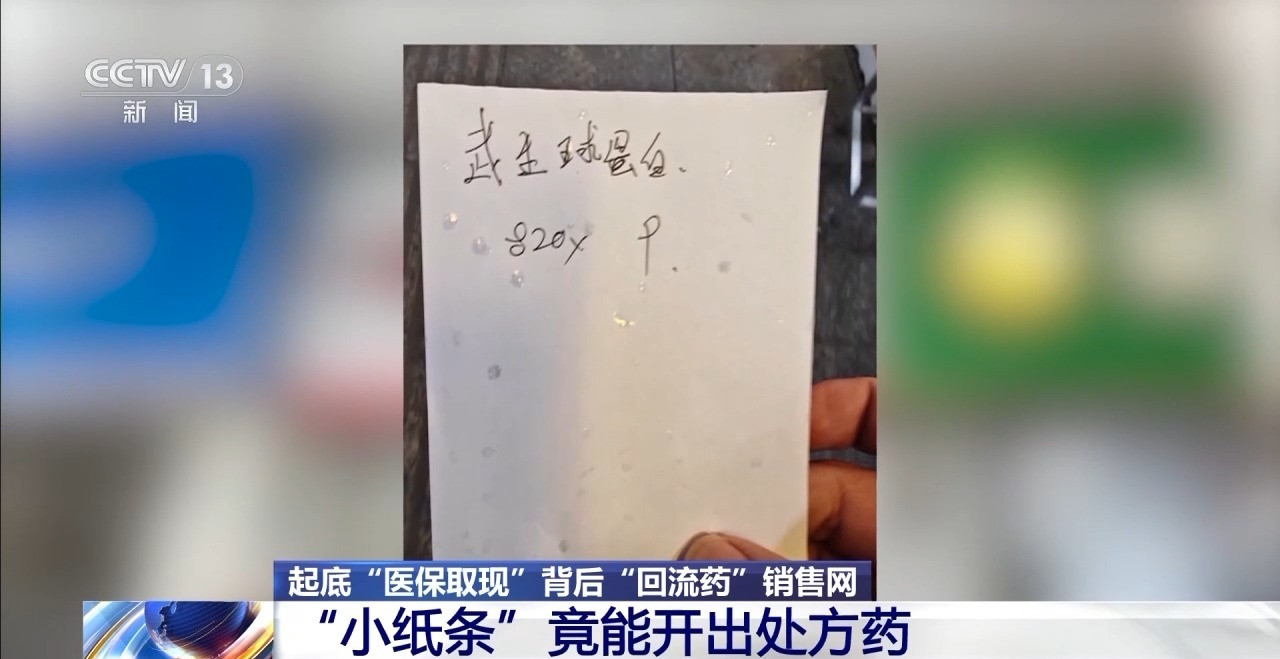 CCTV 13
新闻
武生球蛋白.
820x
起底“医保取现”背后“回流药”销售网
“小纸条”竟能开出处方药